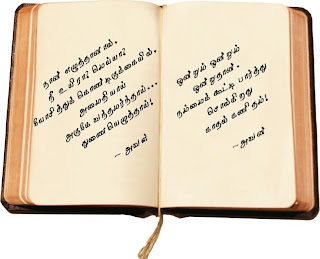 நான் எழுத்தானால்,
நீ உயிரா? மெய்யா?
யோசித்துக் கொண்டிருக்கையில்,
அமைதியாய்
அருகே வந்தமர்ந்தாய்...
துணையெழுத்தாய்!
- அவள்
ஒன்றும் ஒன்றும்
ஒன்றுதான்.
நம்மைக் கூட்டி பார்த்து
சொல்கிறது
காதல் கணிதம்!
- அவன்